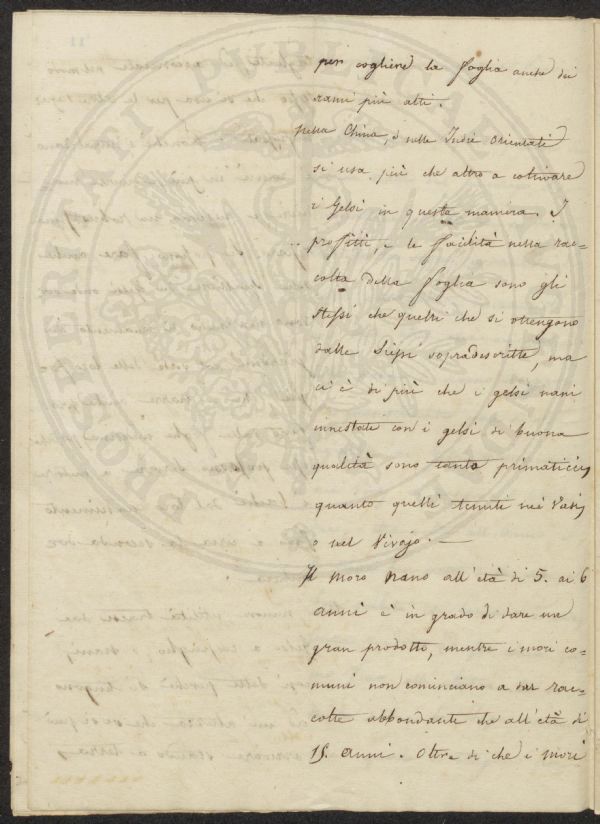 per cogliere la foglia anche dei
rami più alti.
nella China, e nelle Indie Orientali
si usa più che altro a coltivare
i Gelsi in questa maniera. I
profitti, e le facilità nella rac=
colta della foglia sono gli
stessi che quelli che si ottengono
dalle Siepi sopradescritte, ma
ci è di più che i gelsi nani
innestati con i gelsi di buona
qualità sono tanto primaticci,
quanto quelli tenuti nei Vasi,
o nel Vivajo. —
Il moro nano all'età di 5. ai 6
anni è in grado di dare un
gran prodotto, mentre i mori co=
muni non cominciano a dar rac=
colte abbondanti che all'età di
15. anni. Oltre di che i mori